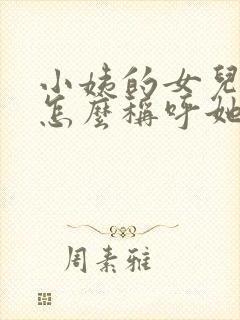 小姨的女兒
怎麼稱呼她
周素雅